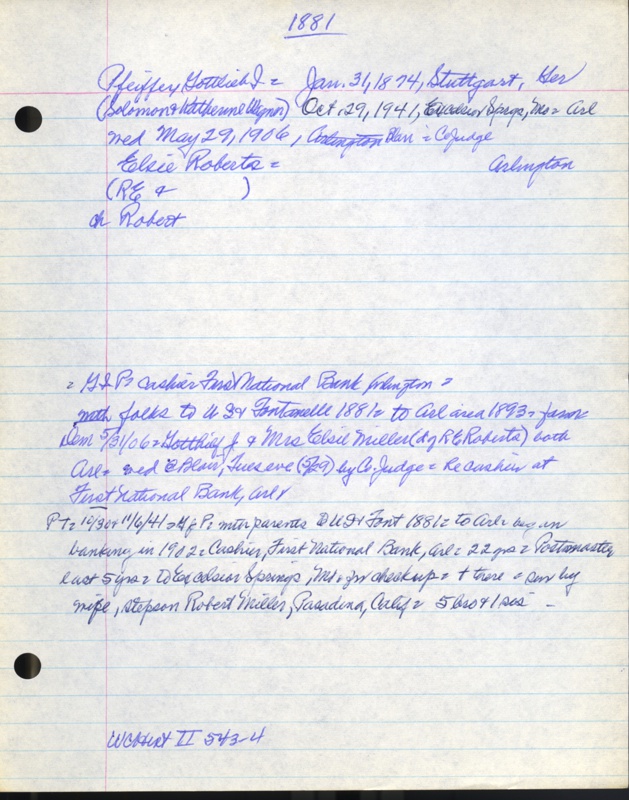 1881
Pfeiffer, Gottlieb J = Jan. 31, 1874, Stuttgart, Ger
(Solomon & Katherine Wagner) Oct. 29, 1941, Excelsior Springs, Mo = Arl
wed May 29, 1906, Arlington Blair = Co Judge
Elsie Roberts = Arlington
(RE & )
ch Robert
= G J P = cashier First National Bank Arlington =
with folks to U S & Fontanelle 1881 = to Arl area 1893 = farm
Dem 5/31/06 = Gottlieb J & Mrs Elsie Miller (d of R E Roberts) both
Arl = wed @ Blair, Tues eve (5/29) by Co Judge = He cashier at
First National Bank, Arl
PT = 10/30 & 11/6/41 = G J P = with parents @ U S & Font 1881 = to Arl = began
banking in 1902 = Cashier, First National Bank, Arl = 22 yrs = Postmaster
last 5 yrs = to Excelsior Springs, Mo = for checkup = + there = sur by
wife, stepson Robert Miller, Pasadena, Calif = 5 bro & 1 sis -
WCoHist II 543-4